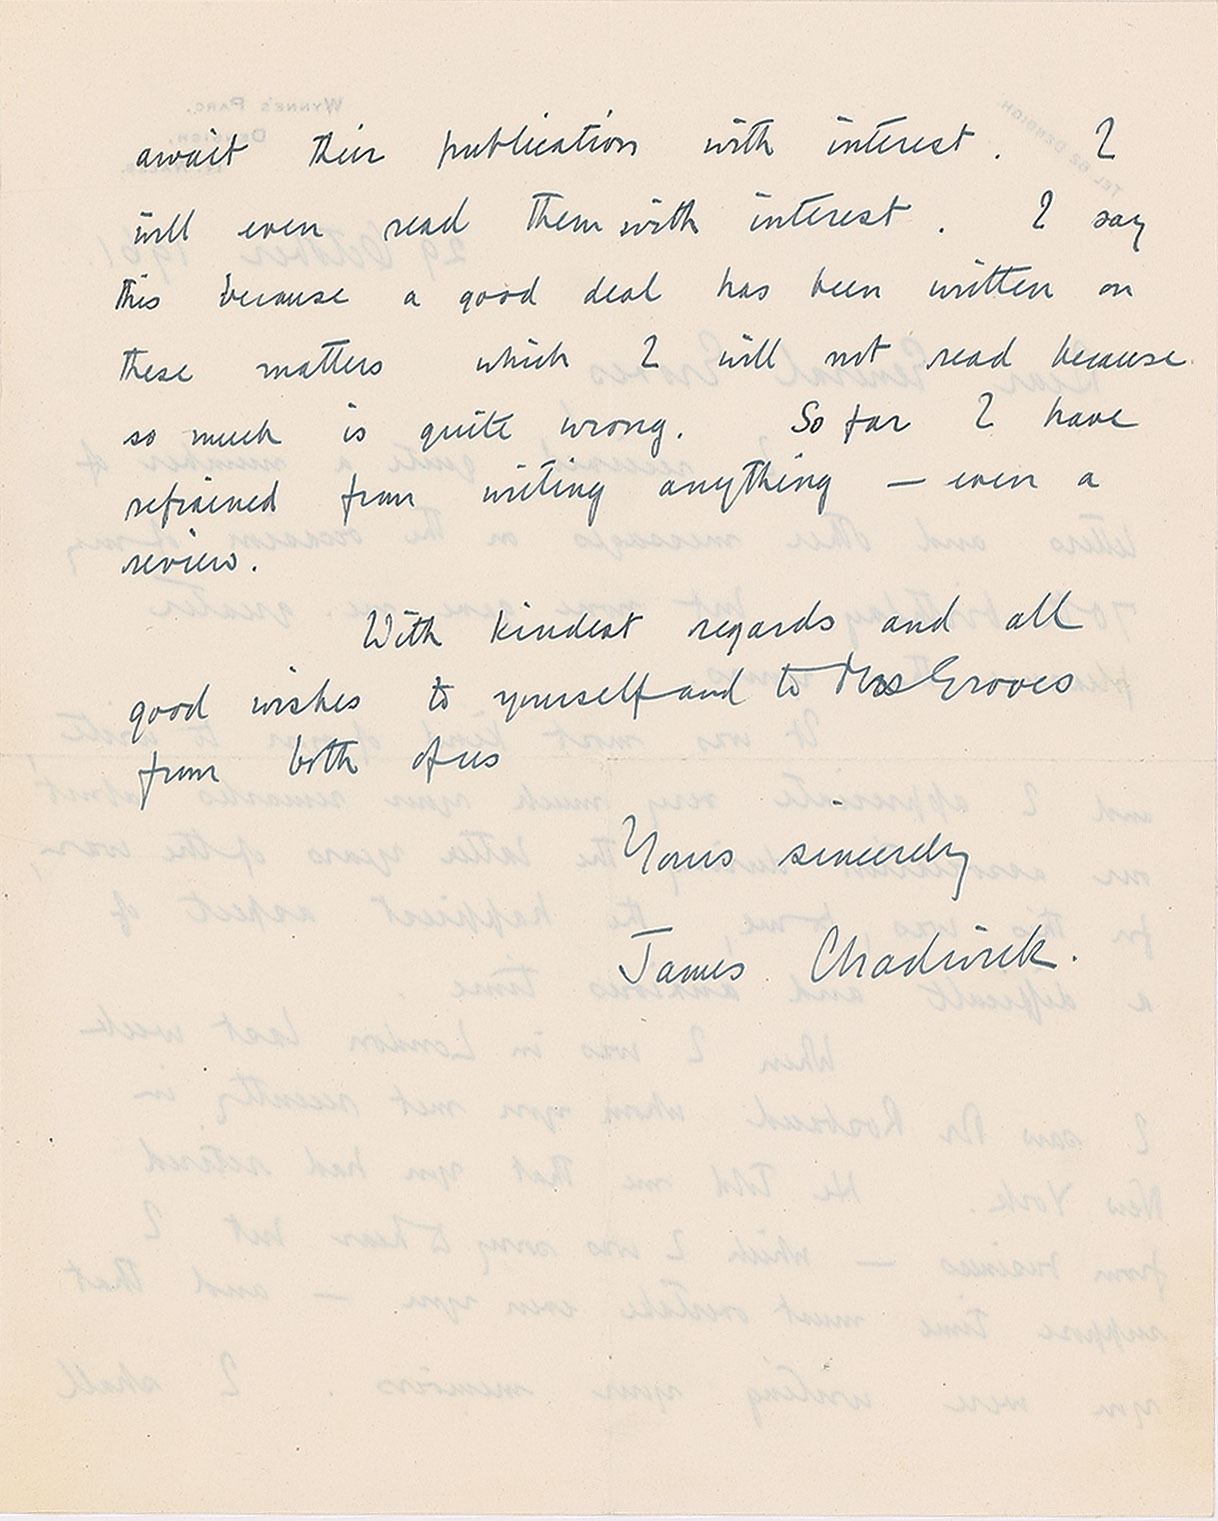 await their publication with interest. I
will even read them with interest. I say
this because a good deal has been written on
these matters which I will not read because
so much is quite wrong. So far I have
refrained from writing anything — even a
review.
With kindest regards and all
good wishes to yourself and to Mrs Groves
from both of us
Yours sincerely
James Chadwick.